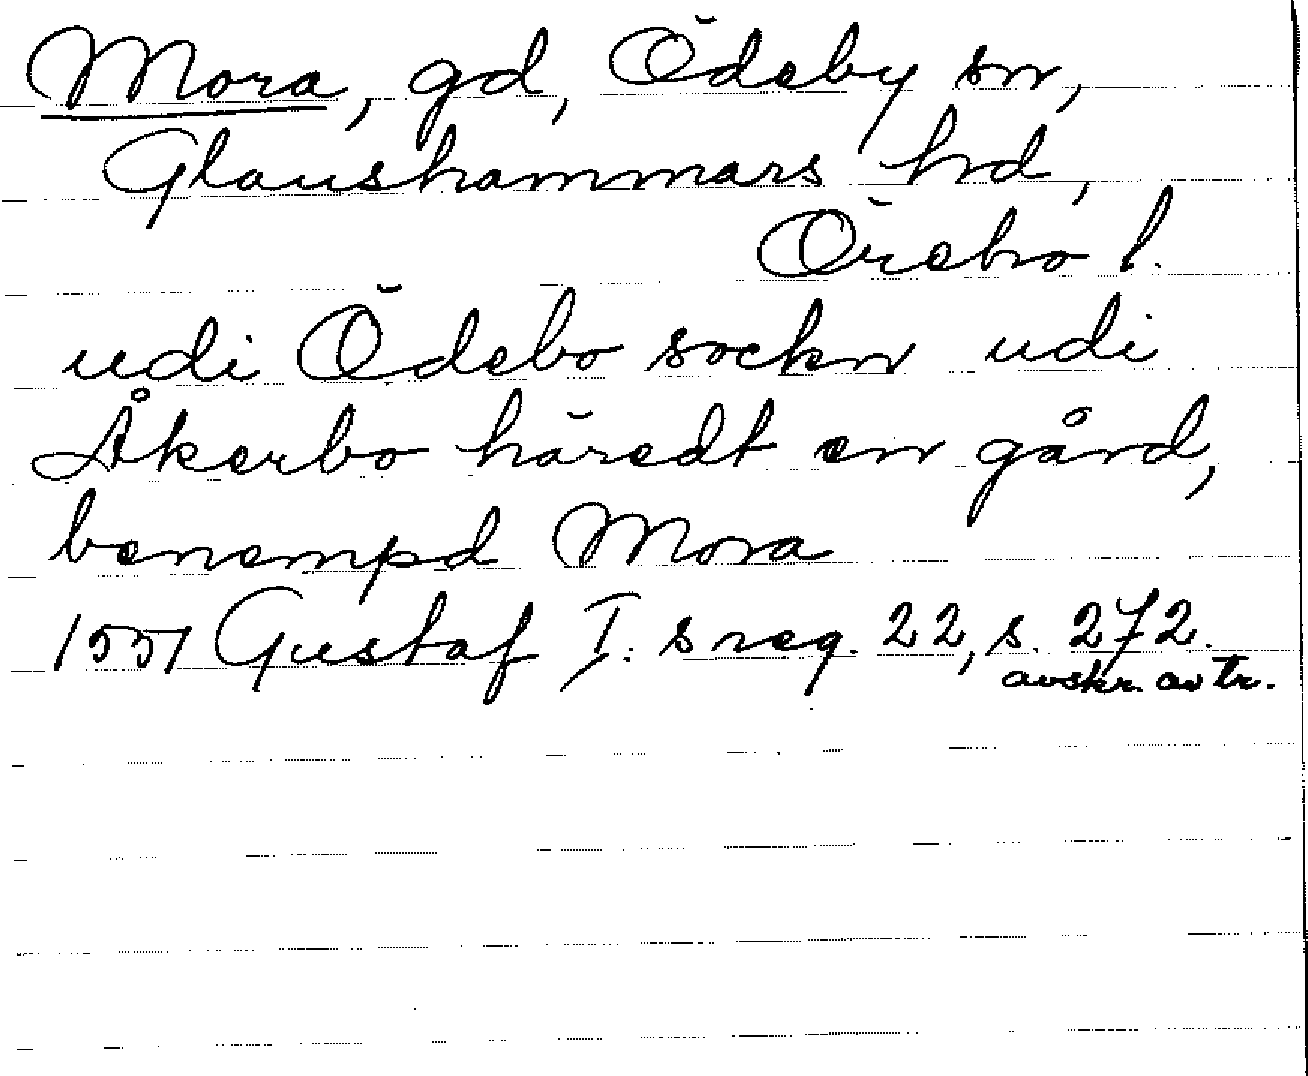 Mora, gd, Ödeby sn,
Glanshammars hd,
Örebro l.
udi Ödebo sockn udi
Åkerbo häredt en gård,
benempd Mora
1551 Gustaf I:s reg. 22, s. 272.
avskr. av tr.